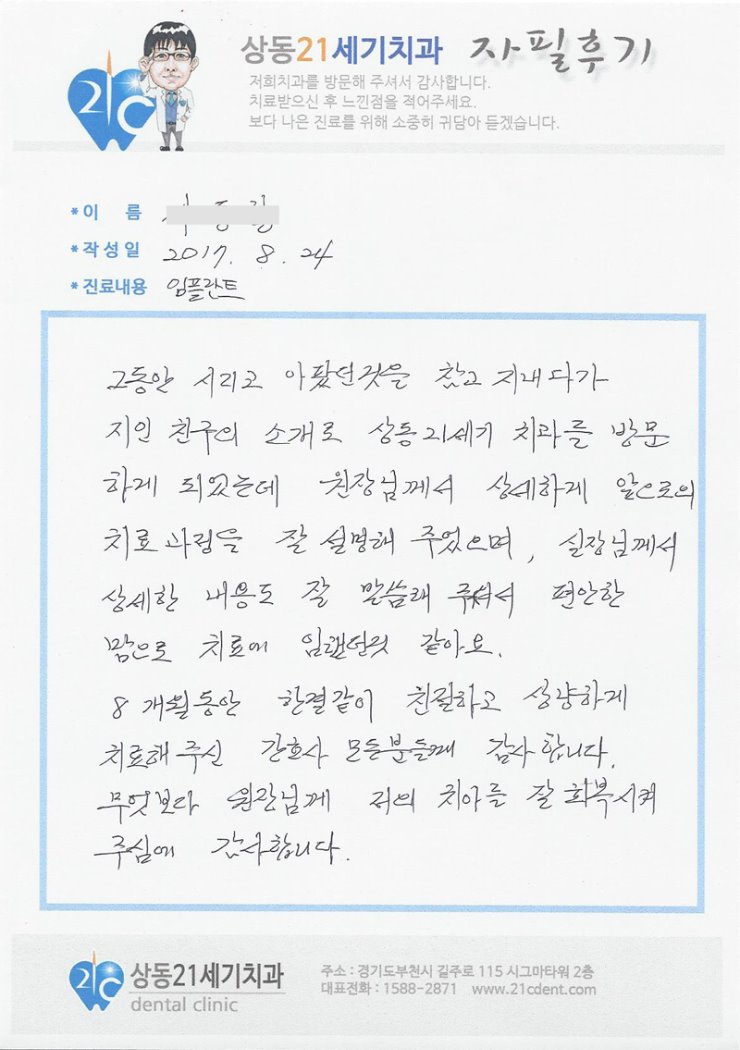 21C
상동21세기치과 자필후기
저희치과를 방문해 주셔서 감사합니다.
치료받으신 후 느낀점을 적어주세요.
보다 나은 진료를 위해 소중히 귀담아 듣겠습니다.
*이 름
*작성일 2017. 8. 24
*진료내용 임플란트
그동안 시리고 아팠던것을 참고 지내다가
지인 친구의 소개로 상동21세기 치과를 방문
하게 되었는데 원장님께서 상세하게 앞으로의
치료과정을 잘 설명해 주었으며, 실장님께서
상세한 내용도 잘 말씀해 주셔서 편안한
맘으로 치료에 임했던것 같아요.
8개월동안 한결같이 친절하고 상냥하게
치료해주신 간호사 모든분들께 감사합니다.
무엇보다 원장님께 저의 치아를 잘 회복시켜
주심에 감사합니다.
21C 상동21세기치과
dental clinic
주소 : 경기도부천시 길주로 115 시그마타워 2층
대표전화 : 1588-2871 www.21cdent.com